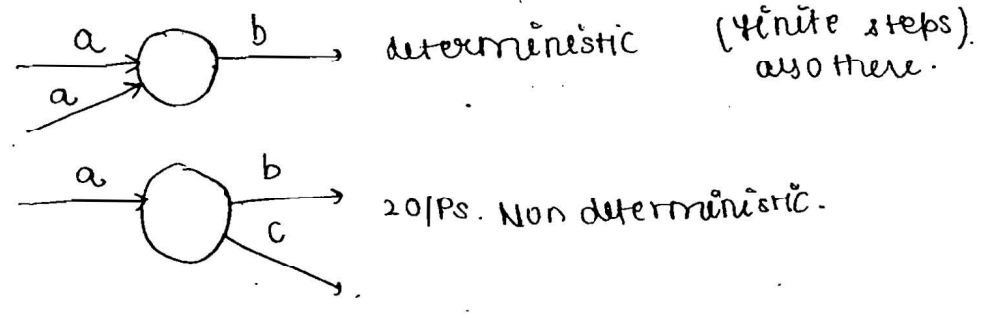 a b deterministic (finite steps).
a also there.
a b
c 2 O/Ps. Non deterministic.